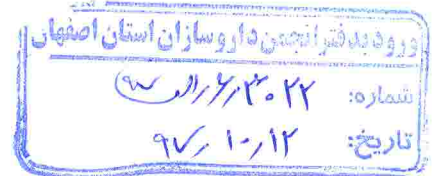 ورود به دفتر انجمن داروسازان استان اصفهان
شماره: ۳۰۲۲/۶/الف/۹۷
تاریخ: ۹۷/۱۰/۱۲